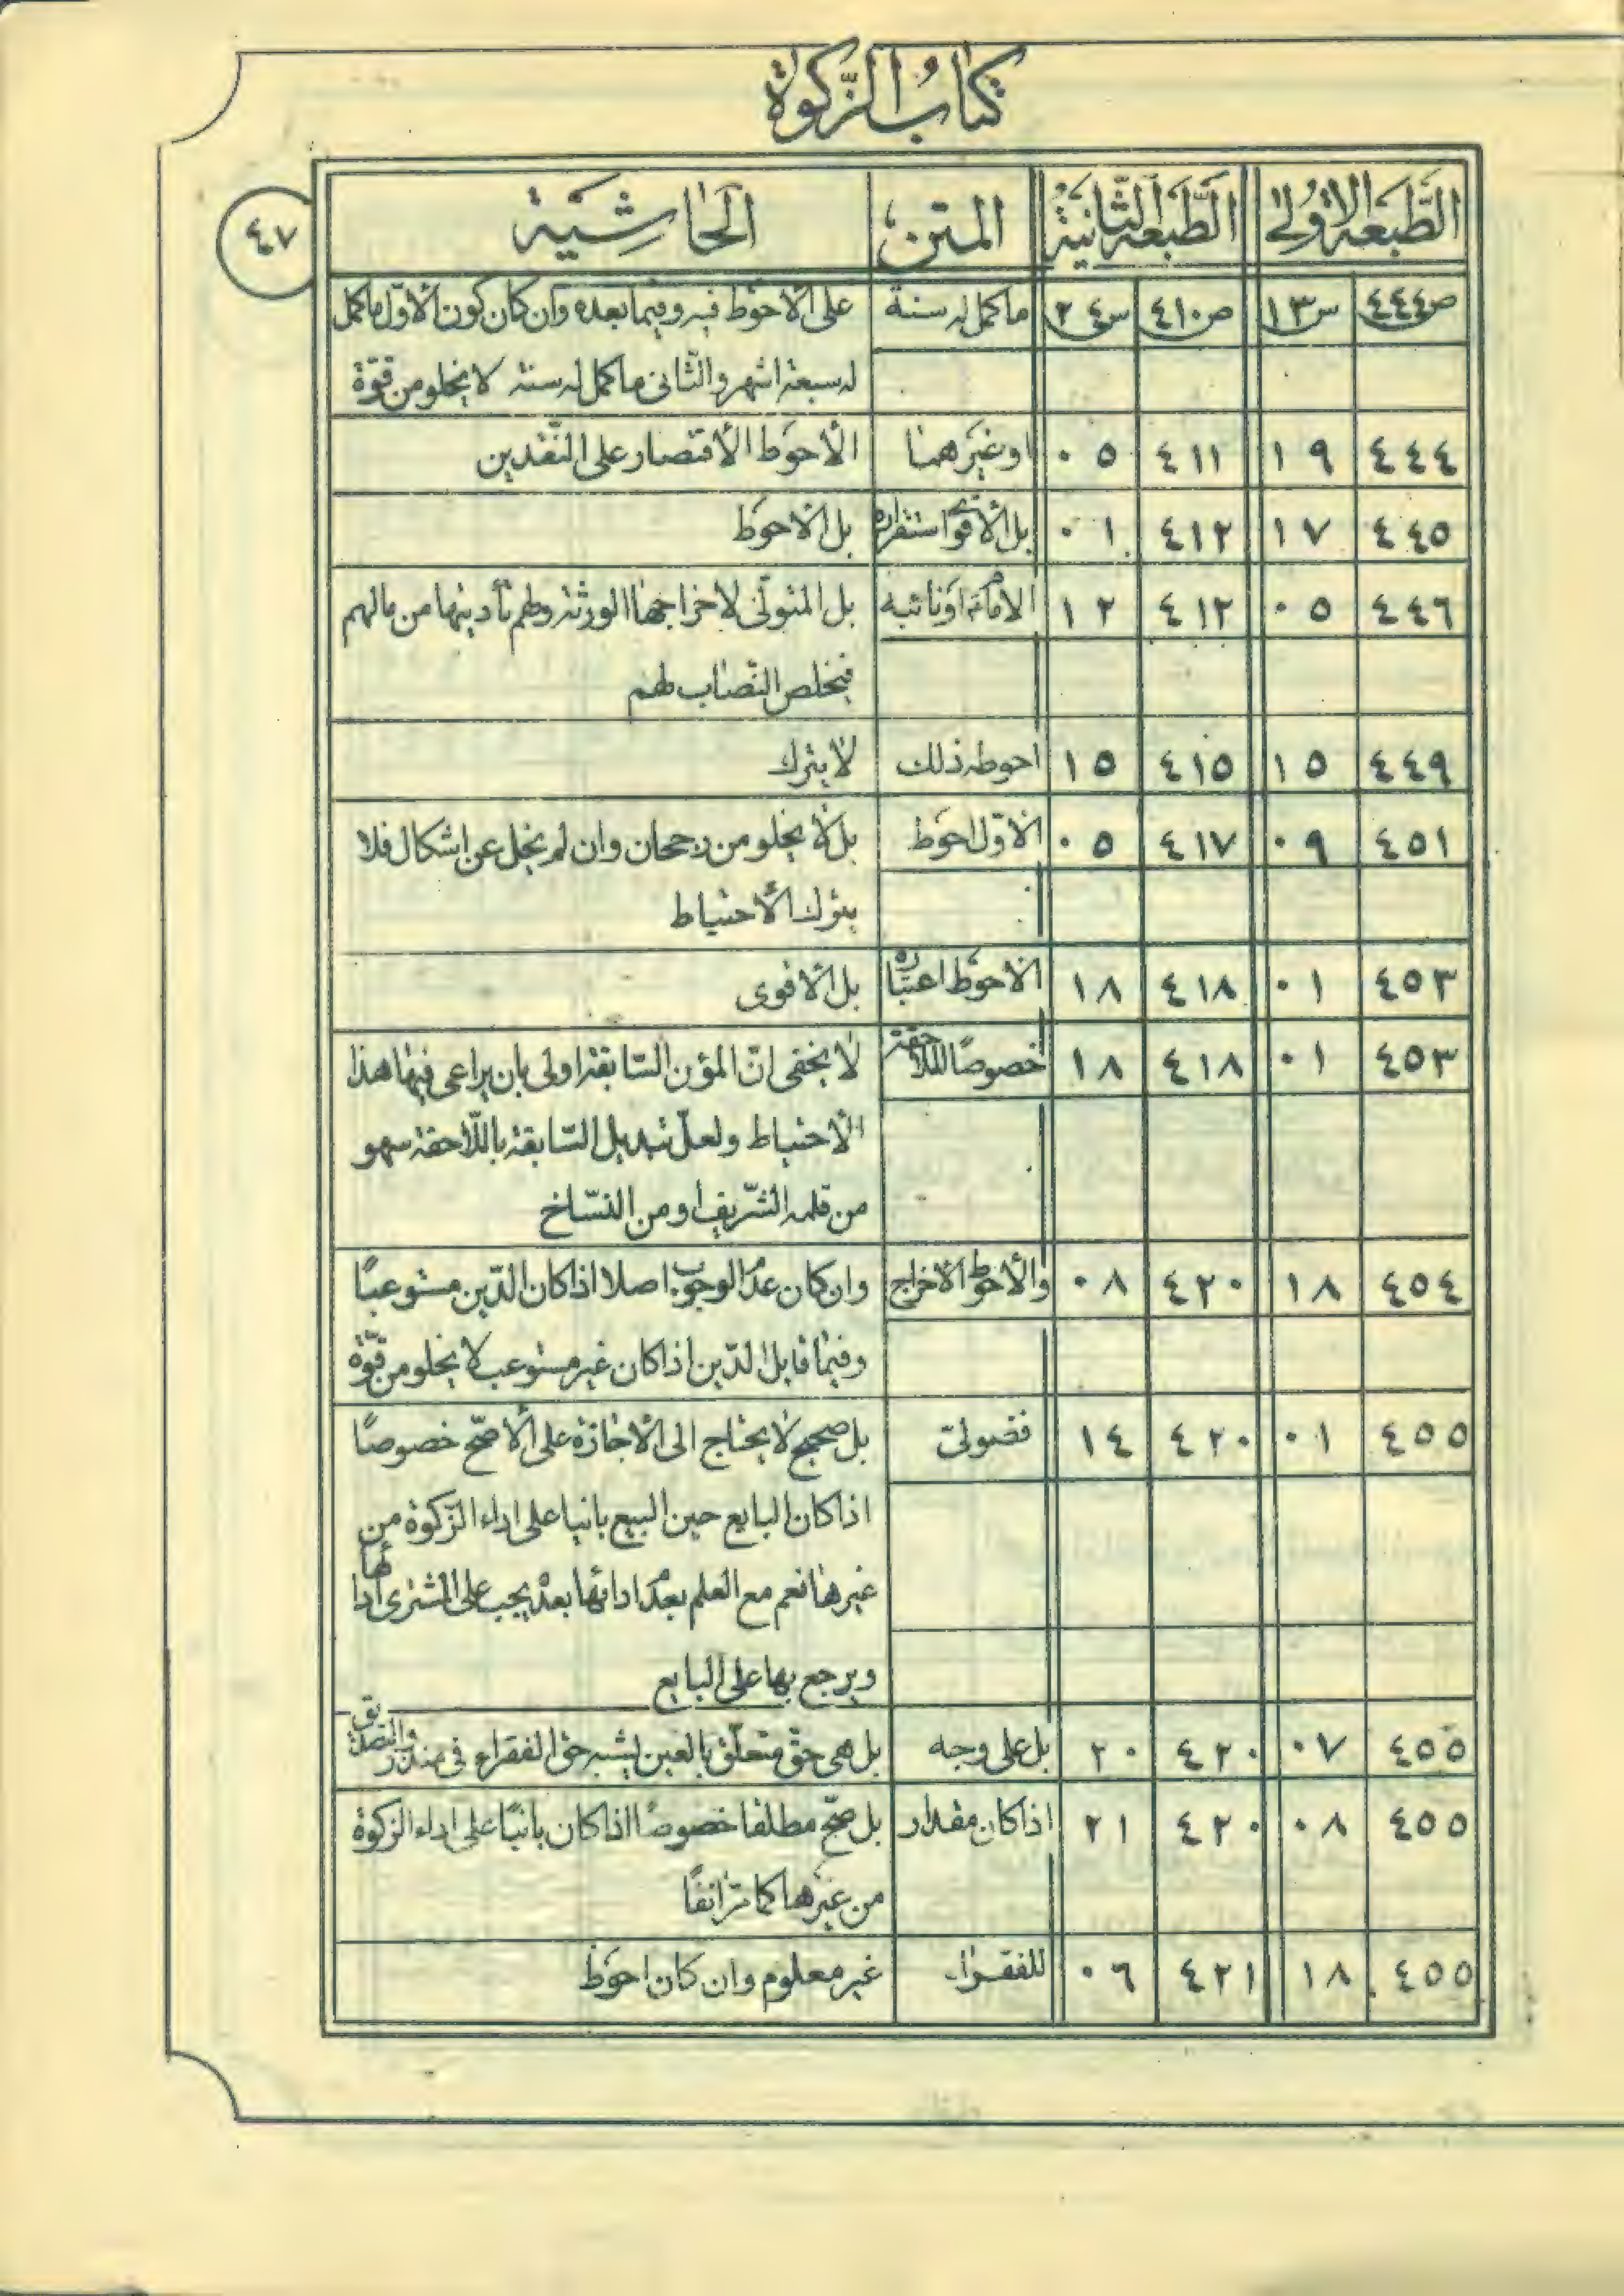 كتاب الزكوة
الطبعة الاولى الطبعة الثانية المتن الحاشية
٤٧
ص٤٤٤ س١٣ ص٤١٠ س٢٤ ما كمل له سنة على الأحوط فيه وفيما بعده وان كان كون الاول ما كمل
له سبعة اشهر والثاني ما كمل له سنة لا يخلو من قوة
٤٤٤ ١٩ ٤١١ ٠٥ او غيرهما الأحوط الأقتصار على النقدين
٤٤٥ ١٧ ٤١٢ ٠١ بل الأقوى استقراره بل الأحوط
٤٤٦ ٠٥ ٤١٢ ١٢ الامام او نائبه بل المتولي لاخراجها الورثة ولهم تأديتها من مالهم
فيخلص النصاب لهم
٤٤٩ ١٥ ٤١٥ ١٥ احوطه ذلك لا يترك
٤٥١ ٠٩ ٤١٧ ٠٥ الاول احوط بل لا يخلو من رجحان وان لم يخل عن اشكال فلا
يترك الأحتياط
٤٥٣ ٠١ ٤١٨ ١٨ الاحوط اعتباره بل الأقوى
٤٥٣ ٠١ ٤١٨ ١٨ خصوصًا اللاحقة لا يخفى ان المؤن السابقة اولى بان يراعى فيها هذا
الأحتياط ولعل تبديل السابقة باللاحقة سهو
من قلمه الشريف او من النساخ
٤٥٤ ١٨ ٤٢٠ ٠٨ والأحوط الاخراج وان كان عدم الوجوب اصلا اذا كان الدين مستوعبًا
وفيما قابل الدين اذا كان غير مستوعب لا يخلو من قوة
٤٥٥ ٠١ ٤٢٠ ١٤ فضولي بل صحيح لا يحتاج الى الأجازة على الأصح خصوصًا
اذا كان البايع حين البيع بانيا على اداء الزكوة من
غيرها نعم مع العلم بعدم ادائها بعد يجب على المشتري اداءها
ويرجع بها على البايع
٤٥٥ ٠٧ ٤٢٠ ٢٠ بل على وجه بل هي حق متعلق بالعين يشبه حق الفقراء في منذور التصدق
٤٥٥ ٠٨ ٤٢٠ ٢١ اذا كان مقدار بل صح مطلقا خصوصًا اذا كان بانيًا على اداء الزكوة
من غيرها كما مر انفًا
٤٥٥ ١٨ ٤٢١ ٠٦ للفقراء غير معلوم وان كان احوط